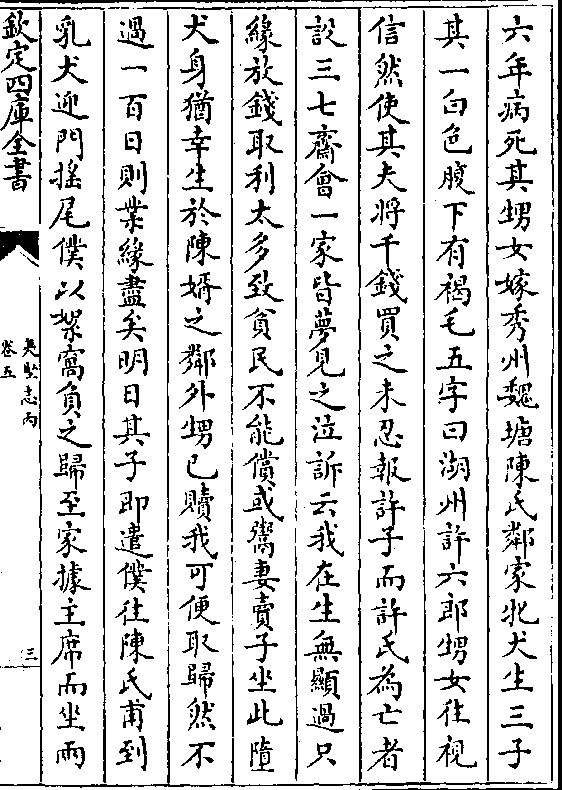 六年病死其甥女嫁秀州魏塘陳氏鄰家牝犬生三子
其一白色腹下有褐毛五字曰湖州許六郎甥女往視
信然使其夫將千錢買之未忍報許子而許氏為亡者
設三七齋會一家皆夢見之泣訴云我在生無顯過只
緣放錢取利太多致貧民不能償或鬻妻賣子坐此墮
犬身猶幸生於陳壻之鄰外甥已贖我可便取歸然不
過一百日則業緣盡矣明日其子即遣僕往陳氏甫到
乳犬迎門揺尾僕以絮窩負之歸至家據主席而坐兩
欽定四庫全書
夷堅志丙
卷五
三